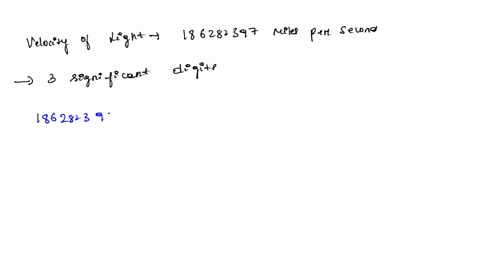 Velocity of light → 186282397 miles per second
→ 3 significant digits
18628239